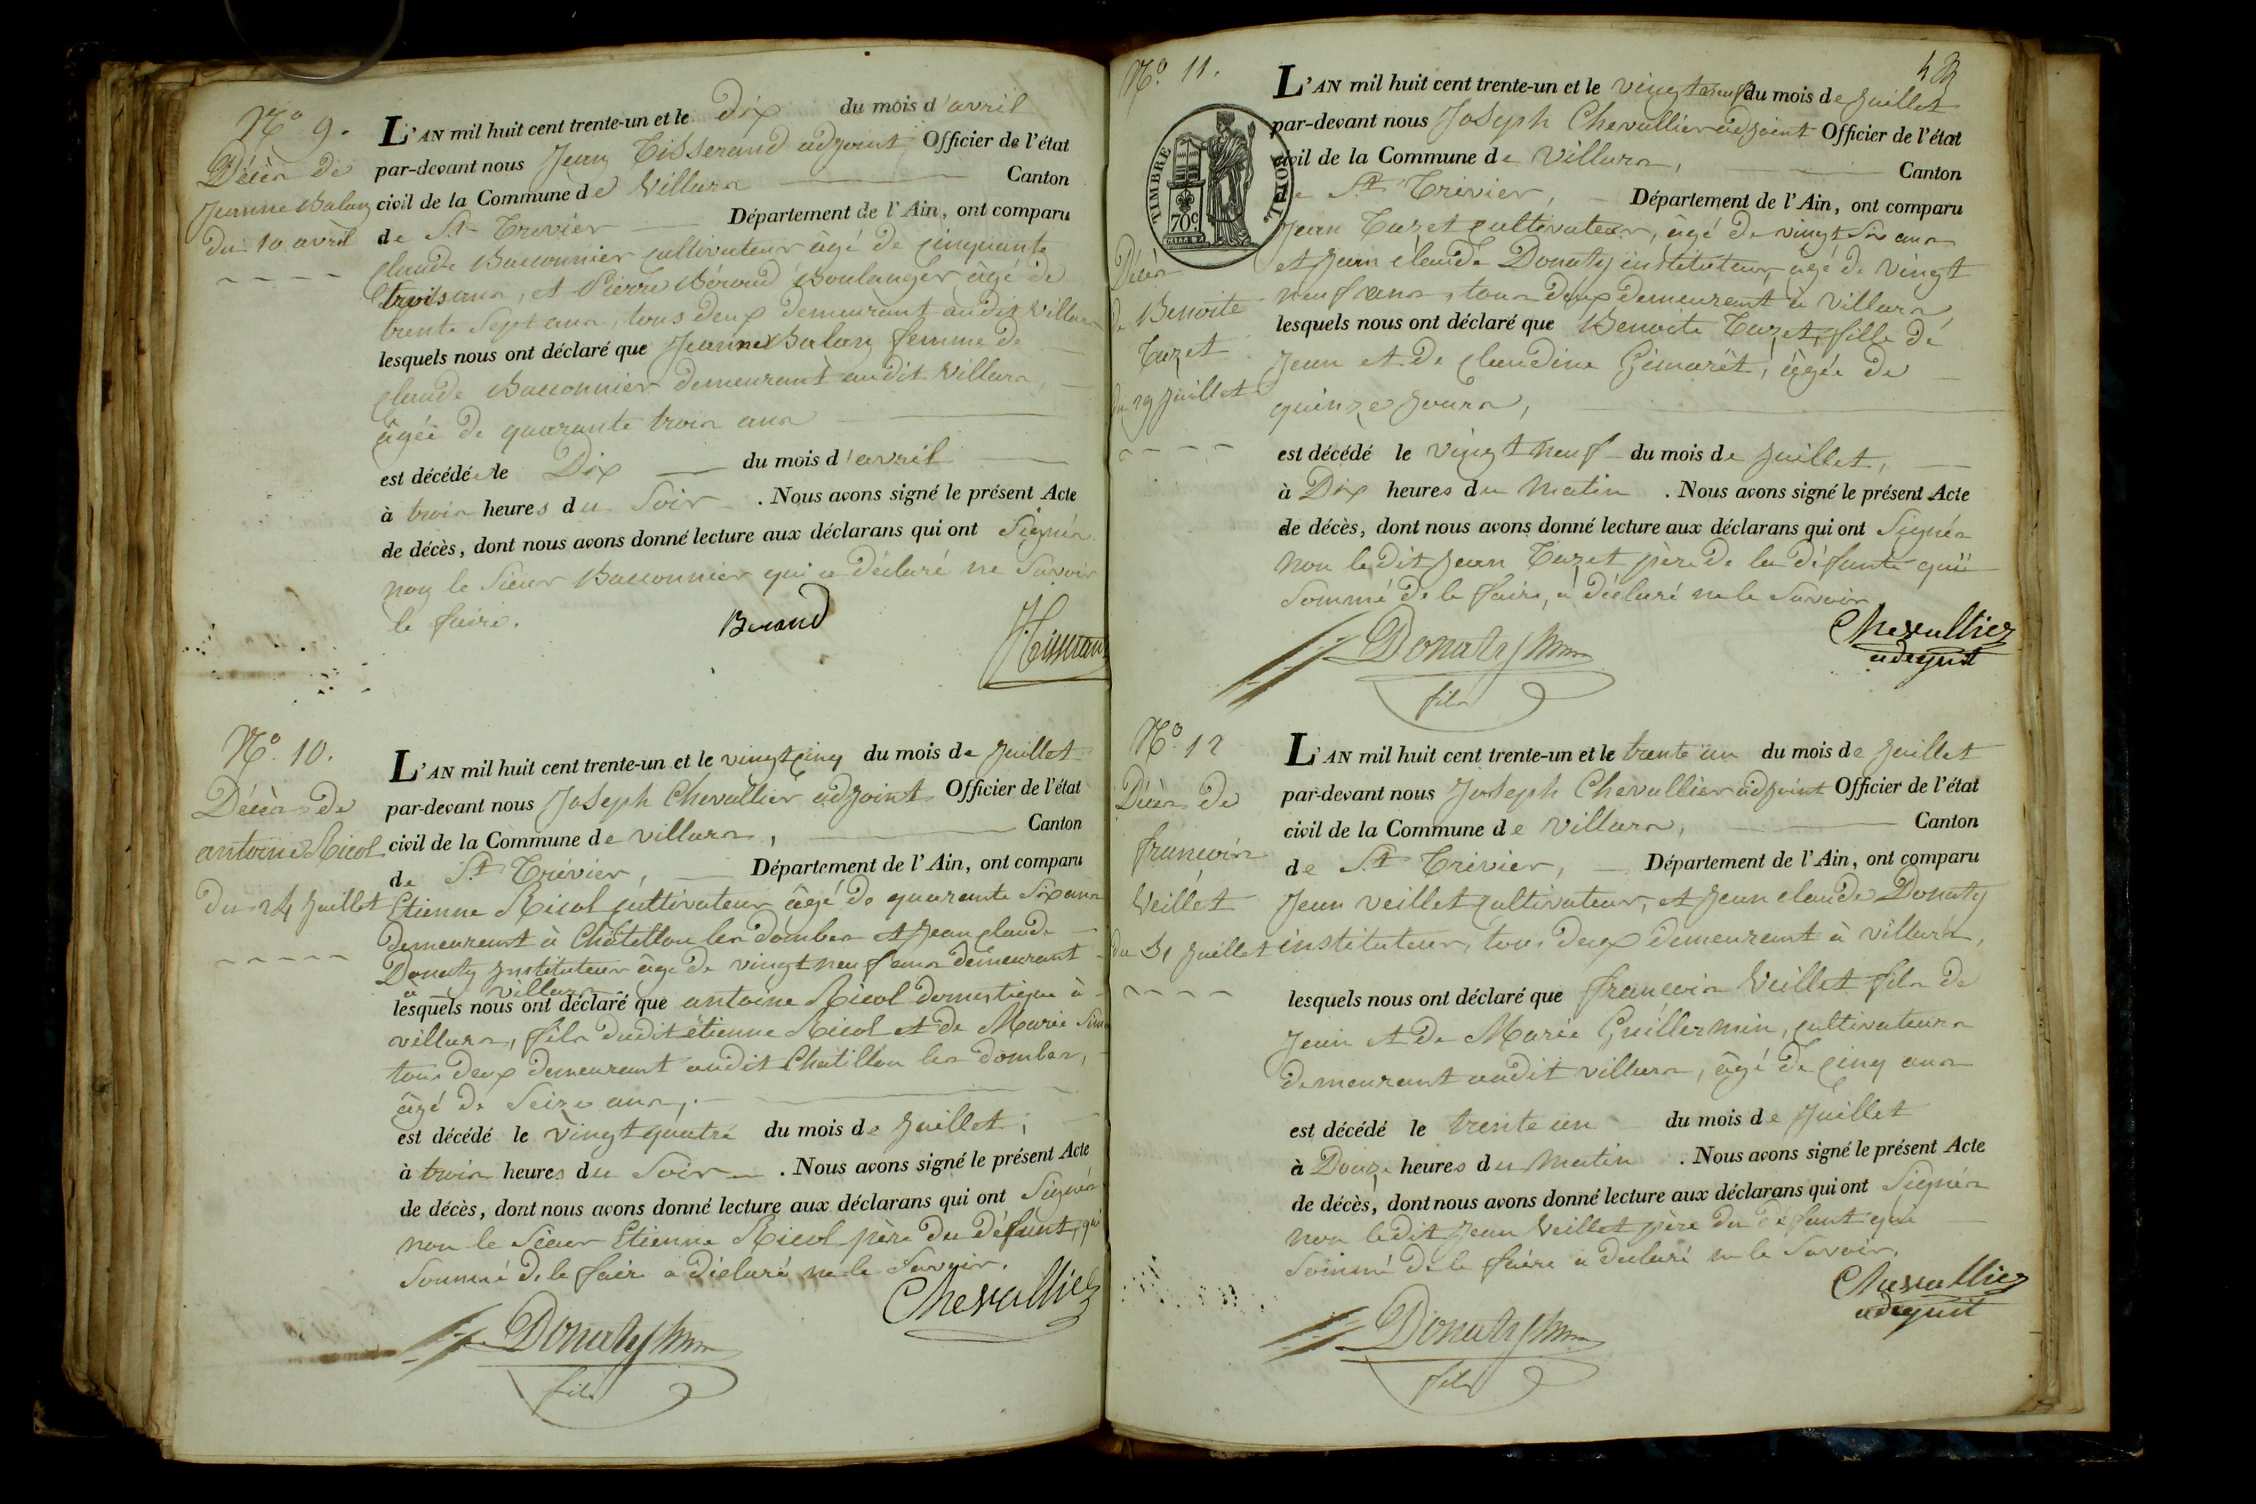 N.o 9.
Décès de
Jeanne Balan
du 10 avril
L'AN mil huit cent trente-un et le dix du mois d'avril
par-devant nous Jean Tisserand adjoint Officier de l'état
civil de la Commune de Villars Canton
de St Trivier Département de l'Ain, ont comparu
Claude cultivateur âgé de cinquante
trois ans, et Pierre Béroud Boulanger âgé de
trente sept ans, tous deux demeurant audit Villars
lesquels nous ont déclaré que Jeanne Balan femme de
Claude demeurant audit Villars,
âgée de quarante trois ans
est décédée le Dix du mois d'avril
à trois heures du Soir . Nous avons signé le présent Acte
de décès, dont nous avons donné lecture aux déclarans qui ont Signés
non le Sieur qui a déclaré ne Savoir
le faire.
Beroud
Tisserand
N.o 10.
Décès de
antoine Ricol
Du 24 Juillet
L'AN mil huit cent trente-un et le vingt cinq du mois de Juillet
par-devant nous Joseph Chevallier adjoint Officier de l'état
civil de la Commune de villars, Canton
de St Trivier, Département de l'Ain, ont comparu
Etienne Ricol cultivateur âgé de quarante Six ans
demeurant à Châtillon les dombes et Jean claude
Donaty Instituteur âgé de vingt neuf ans demeurant
à villars
lesquels nous ont déclaré que antoine Ricol domestique à
villars, fils dudit étienne Ricol et de Marie
tous deux demeurant audit Chatillon les dombes,
âgé de Seize ans,
est décédé le vingt quatre du mois de Juillet,
à trois heures du Soir . Nous avons signé le présent Acte
de décès, dont nous avons donné lecture aux déclarans qui ont Signés
non le Sieur Etienne Ricol père du défunt, qui
Sommé de le faire a déclaré ne le Savoir.
Chevallier
Donaty
fils
N.o 11.
TIMBRE ROYAL
70c
Décès
de Benoite
Tazet
du 29 Juillet
L'AN mil huit cent trente-un et le vingt neuf du mois de Juillet
par-devant nous Joseph Chevallier adjoint Officier de l'état
civil de la Commune de Villars, Canton
de St Trivier, Département de l'Ain, ont comparu
Jean Tazet cultivateur, âgé de vingt Six ans
et Jean claude Donaty instituteur, âgé de vingt
neuf ans, tous deux demeurant à Villars,
lesquels nous ont déclaré que Benoite Tazet, fille de
Jean et de Claudine Gimarêt, âgée de
quinze Jours,
est décédé le vingt neuf du mois de Juillet,
à Dix heures du Matin . Nous avons signé le présent Acte
de décès, dont nous avons donné lecture aux déclarans qui ont Signés
non le dit Jean Tazet père de la défunte qui
Sommé de le faire, a déclaré ne le Savoir
Chevallier
adjoint
Donaty
fils
N.o 12
Décès de
françois
Veillet
du 31 Juillet
L'AN mil huit cent trente-un et le trente un du mois de Juillet
par-devant nous Joseph Chevallier adjoint Officier de l'état
civil de la Commune de Villars, Canton
de St Trivier, Département de l'Ain, ont comparu
Jean veillet cultivateur, et Jean claude Donaty
instituteur, tous deux demeurant à villars,
lesquels nous ont déclaré que françois Veillet fils de
Jean et de Marie Guillermin, cultivateurs
demeurant audit villars, âgé de cinq ans
est décédé le trente un du mois de Juillet
à Douze heures du Matin . Nous avons signé le présent Acte
de décès, dont nous avons donné lecture aux déclarans qui ont Signés
non le dit Jean Veillet père du défunt qui
Sommé de le faire a déclaré ne le Savoir.
Chevallier
adjoint
Donaty
fils